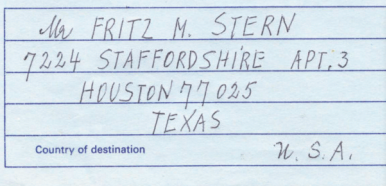 Mr FRITZ M. STERN
7224 STAFFORDSHIRE APT. 3
HOUSTON 77025
TEXAS
Country of destination U.S.A.